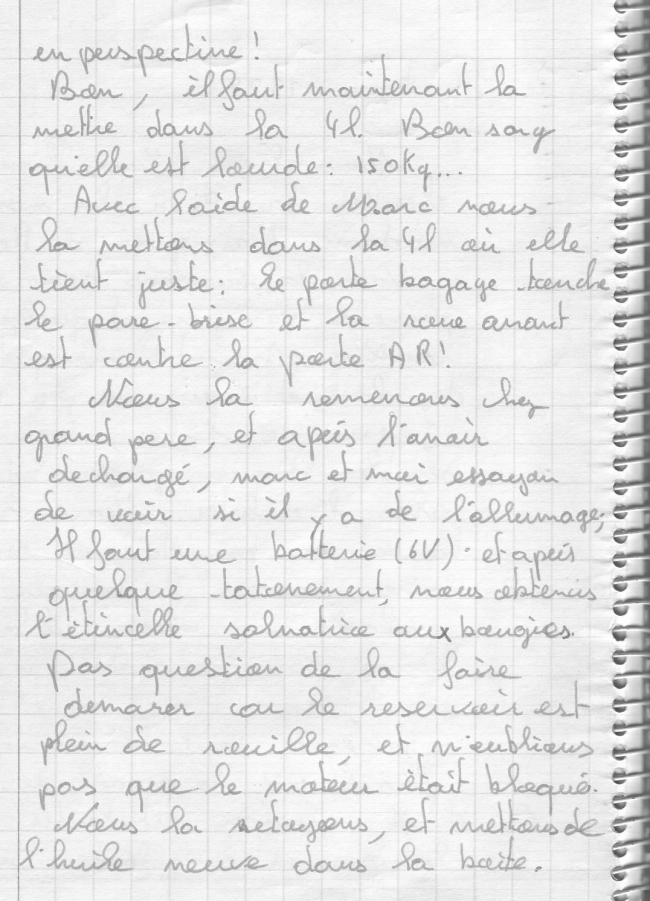 en perspective !
Bon, il faut maintenant la
mettre dans la 4l. Bon sang
qu'elle est lourde : 150Kg...
Avec l'aide de Marc nous
la mettons dans la 4l où elle
tient juste : le porte bagage touche
le pare-brise et la roue avant
est contre la porte AR !
Nous la remenons chez
grand pere, et après l'avoir
dechargé, marc et moi essayon
de voir si il y a de l'allumage,
Il faut une batterie (6V). et après
quelque tatonement, nous obtenons
l'étincelle salvatrice aux bougies.
Pas question de la faire
demarer car le reservoir est
plein de rouille, et n'oublions
pas que le moteur était bloqué.
Nous la netoyons, et mettons de
l'huile neuve dans la boite.